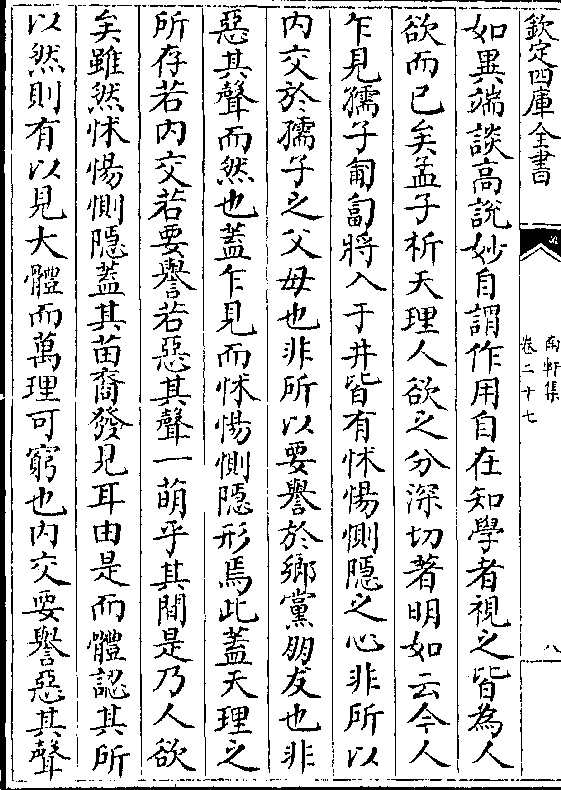 欽定四庫全書
南軒集
卷二十七
八
如異端談高說妙自謂作用自在知學者視之皆為人
欲而已矣孟子析天理人欲之分深切著明如云今人
乍見孺子匍匐將入于井皆有怵惕惻隱之心非所以
内交於孺子之父母也非所以要譽於鄉黨朋友也非
惡其聲而然也蓋乍見而怵惕惻隱形焉此蓋天理之
所存若内交若要譽若惡其聲一萌乎其間是乃人欲
矣雖然怵惕惻隱蓋其苗裔發見耳由是而體認其所
以然則有以見大體而萬理可窮也内交要譽惡其聲